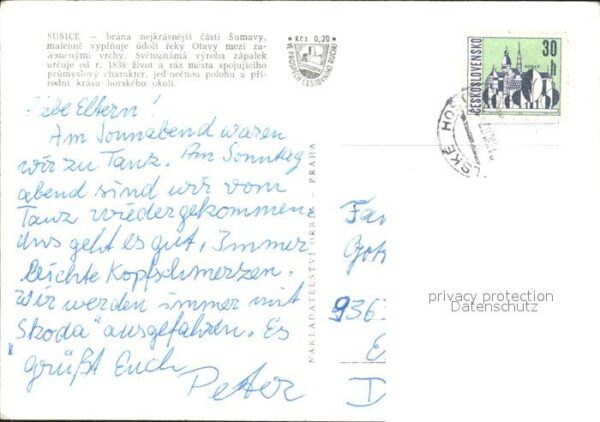 SUŠICE — brána nejkrásnější části Šumavy,
malebně vyplňuje údolí řeky Otavy mezi za-
lesněnými vrchy. Světoznámá výroba zápalek
určuje od r. 1838 život a ráz města spojujícího
průmyslový charakter, jedinečnou polohu a pří-
rodní krásu horského okolí.
Kčs 0,20
VE PROSPĚCH CESTOVNÍHO RUCHU
ČESKOSLOVENSKO
30 h
KOŠICE
Liebe Eltern!
Am Sonnabend waren
wir zu Tanz. Am Sonntag
abend sind wir vom
Tanz wiedergekommen.
Uns geht es gut. Immer
leichte Kopfschmerzen.
Wir werden immer mit
"Skoda" ausgefahren. Es
grüßt Euch
Peter
NAKLADATELSTVÍ ORBIS - PRAHA
Fam
936
E
D
privacy protection
Datenschutz